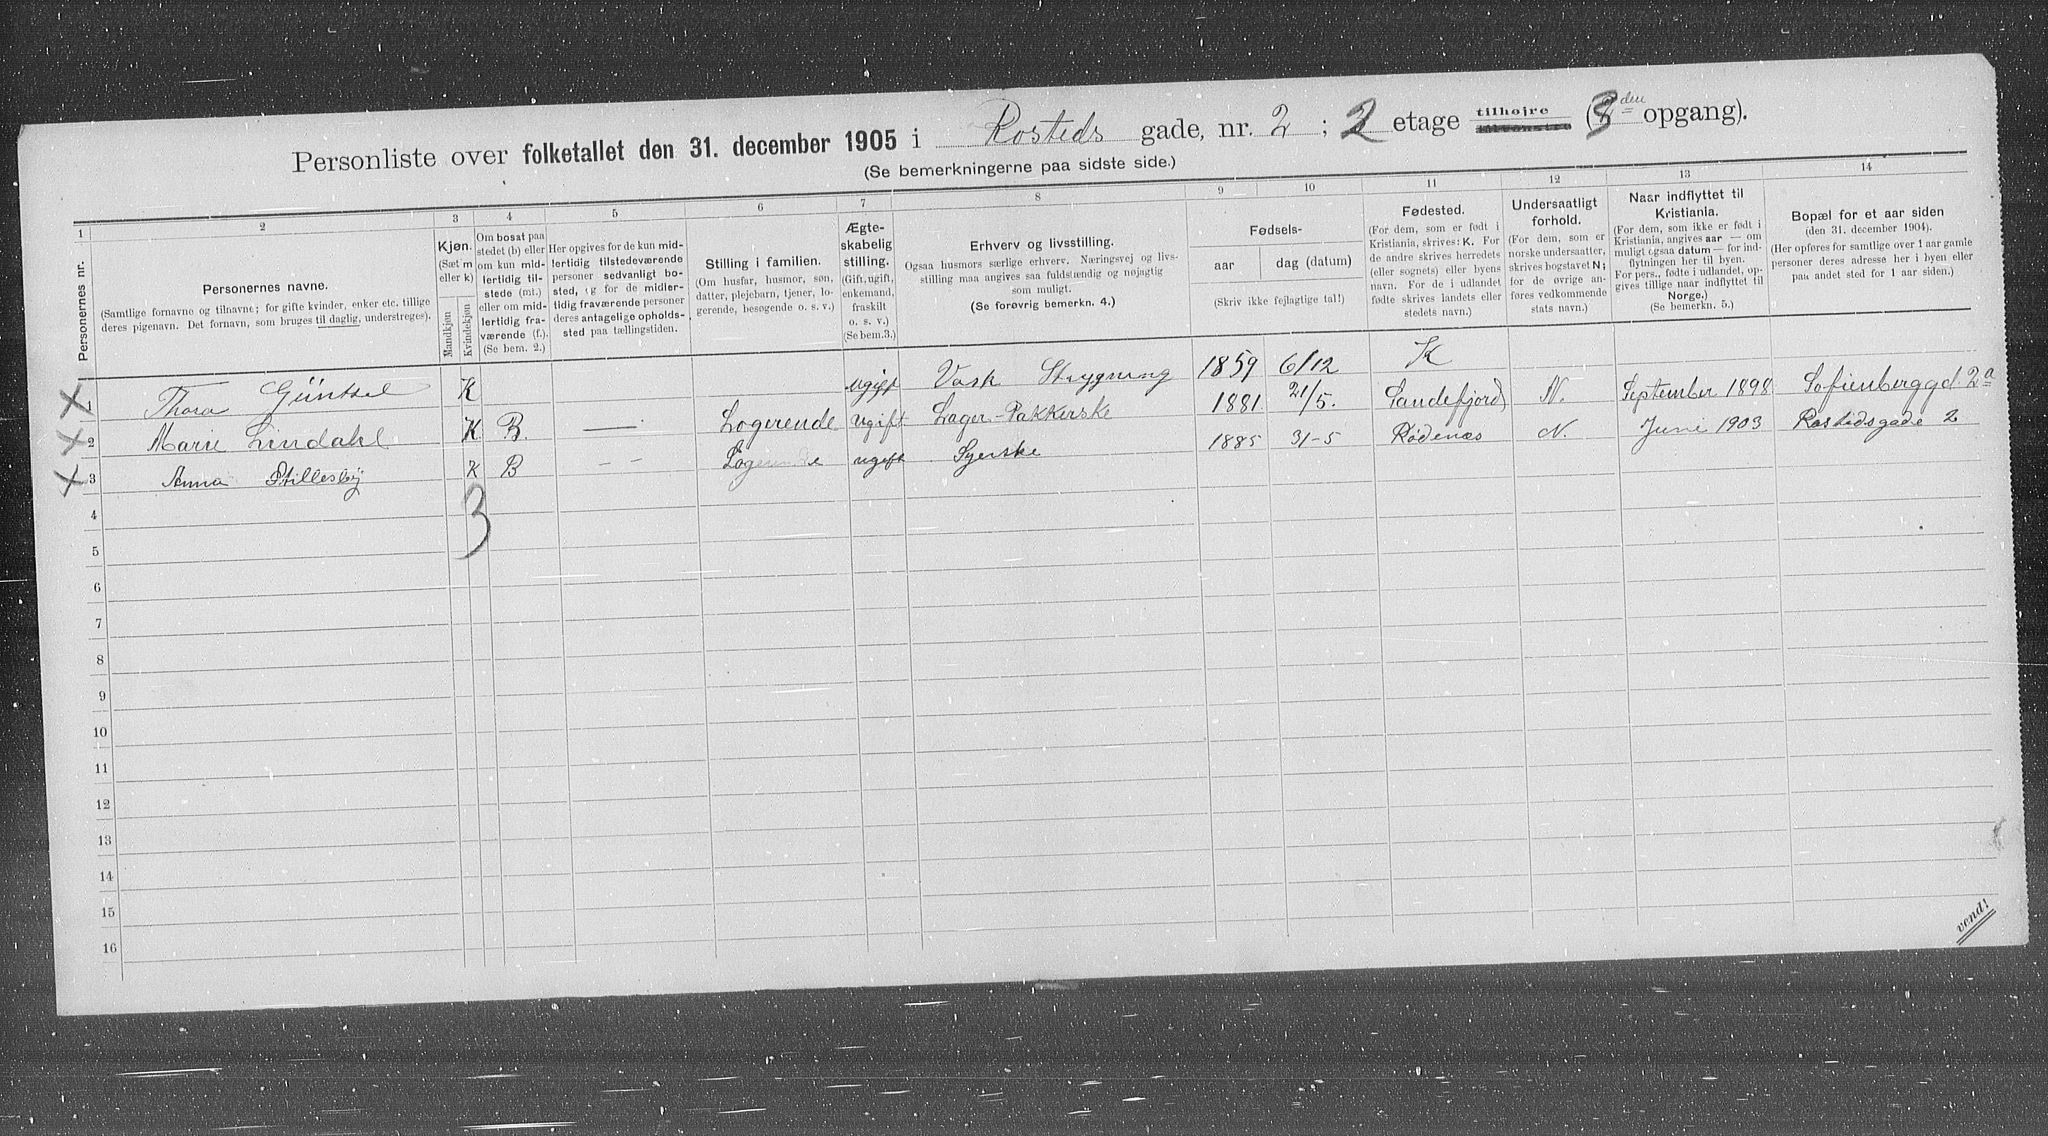 Personliste over folketallet den 31. december 1905 i Rosteds gade, nr. 2 ; 2 etage tilhøjre (3 den opgang).
(Se bemerkningerne paa sidste side.)
1 2 3 4 5 6 7 8 9 10 11 12 13 14
Personernes nr.
Personernes navne.
(Samtlige fornavne og tilnavne; for gifte kvinder, enker etc. tillige
deres pigenavn. Det fornavn, som bruges til daglig, understreges).
Kjøn.
(Sæt m
eller k)
Mandkjøn
Kvindekjøn
Om bosat paa
stedet (b) eller
om kun mid-
lertidig til-
stede (mt.)
eller om mid-
lertidig fra-
værende (f.).
(Se bem. 2.)
Her opgives for de kun mid-
lertidig tilstedeværende
personer sedvanligt bo-
sted, og for de midler-
tidig fraværende personer
deres antagelige opholds-
sted paa tællingstiden.
Stilling i familien.
(Om husfar, husmor, søn,
datter, plejebarn, tjener, lo-
gerende, besøgende o. s. v.)
Ægte-
skabelig
stilling.
(Gift, ugift,
enkemand,
fraskilt
o. s. v.)
(Se bem.3.)
Erhverv og livsstilling.
Ogsaa husmors særlige erhverv. Næringsvej og livs-
stilling maa angives saa fuldstændig og nøjagtig
som muligt.
(Se forøvrig bemerkn. 4.)
Fødsels-
aar dag (datum)
(Skriv ikke fejlagtige tal!)
Fødested.
(For dem, som er født i
Kristiania, skrives: K. For
de andre skrives herredets
(eller sognets) eller byens
navn. For de i udlandet
fødte skrives landets eller
stedets navn.)
Undersaatligt
forhold.
(For dem, som er
norske undersaatter,
skrives bogstavet N;
for de øvrige an-
føres vedkommende
stats navn.)
Naar indflyttet til
Kristiania.
(For dem, som ikke er født i
Kristiania, angives aar — om
muligt ogsaa datum — for ind-
flytningen her til byen.
For pers., fødte i udlandet, op-
gives tillige naar indflyttet til
Norge.)
(Se bemerkn. 5.)
Bopæl for et aar siden
(den 31. december 1904).
(Her opføres for samtlige over 1 aar gamle
personer deres adresse her i byen eller
paa andet sted for 1 aar siden.)
X 1 Thora Güntsel K ugift Vask Strygning 1859 6/12 K
X 2 Marie Lindahl K B. — Logerende ugift Lager-Pakkerske 1881 21/5. Sandefjord N. September 1898 Sofienberggd. 2a
X 3 Anna Stillesby K B – – Logerende ugift Syerske 1885 31-5 Rødenæs N. Juni 1903 Rostedsgade 2
3
4
5
6
7
8
9
10
11
12
13
14
15
16
vend!